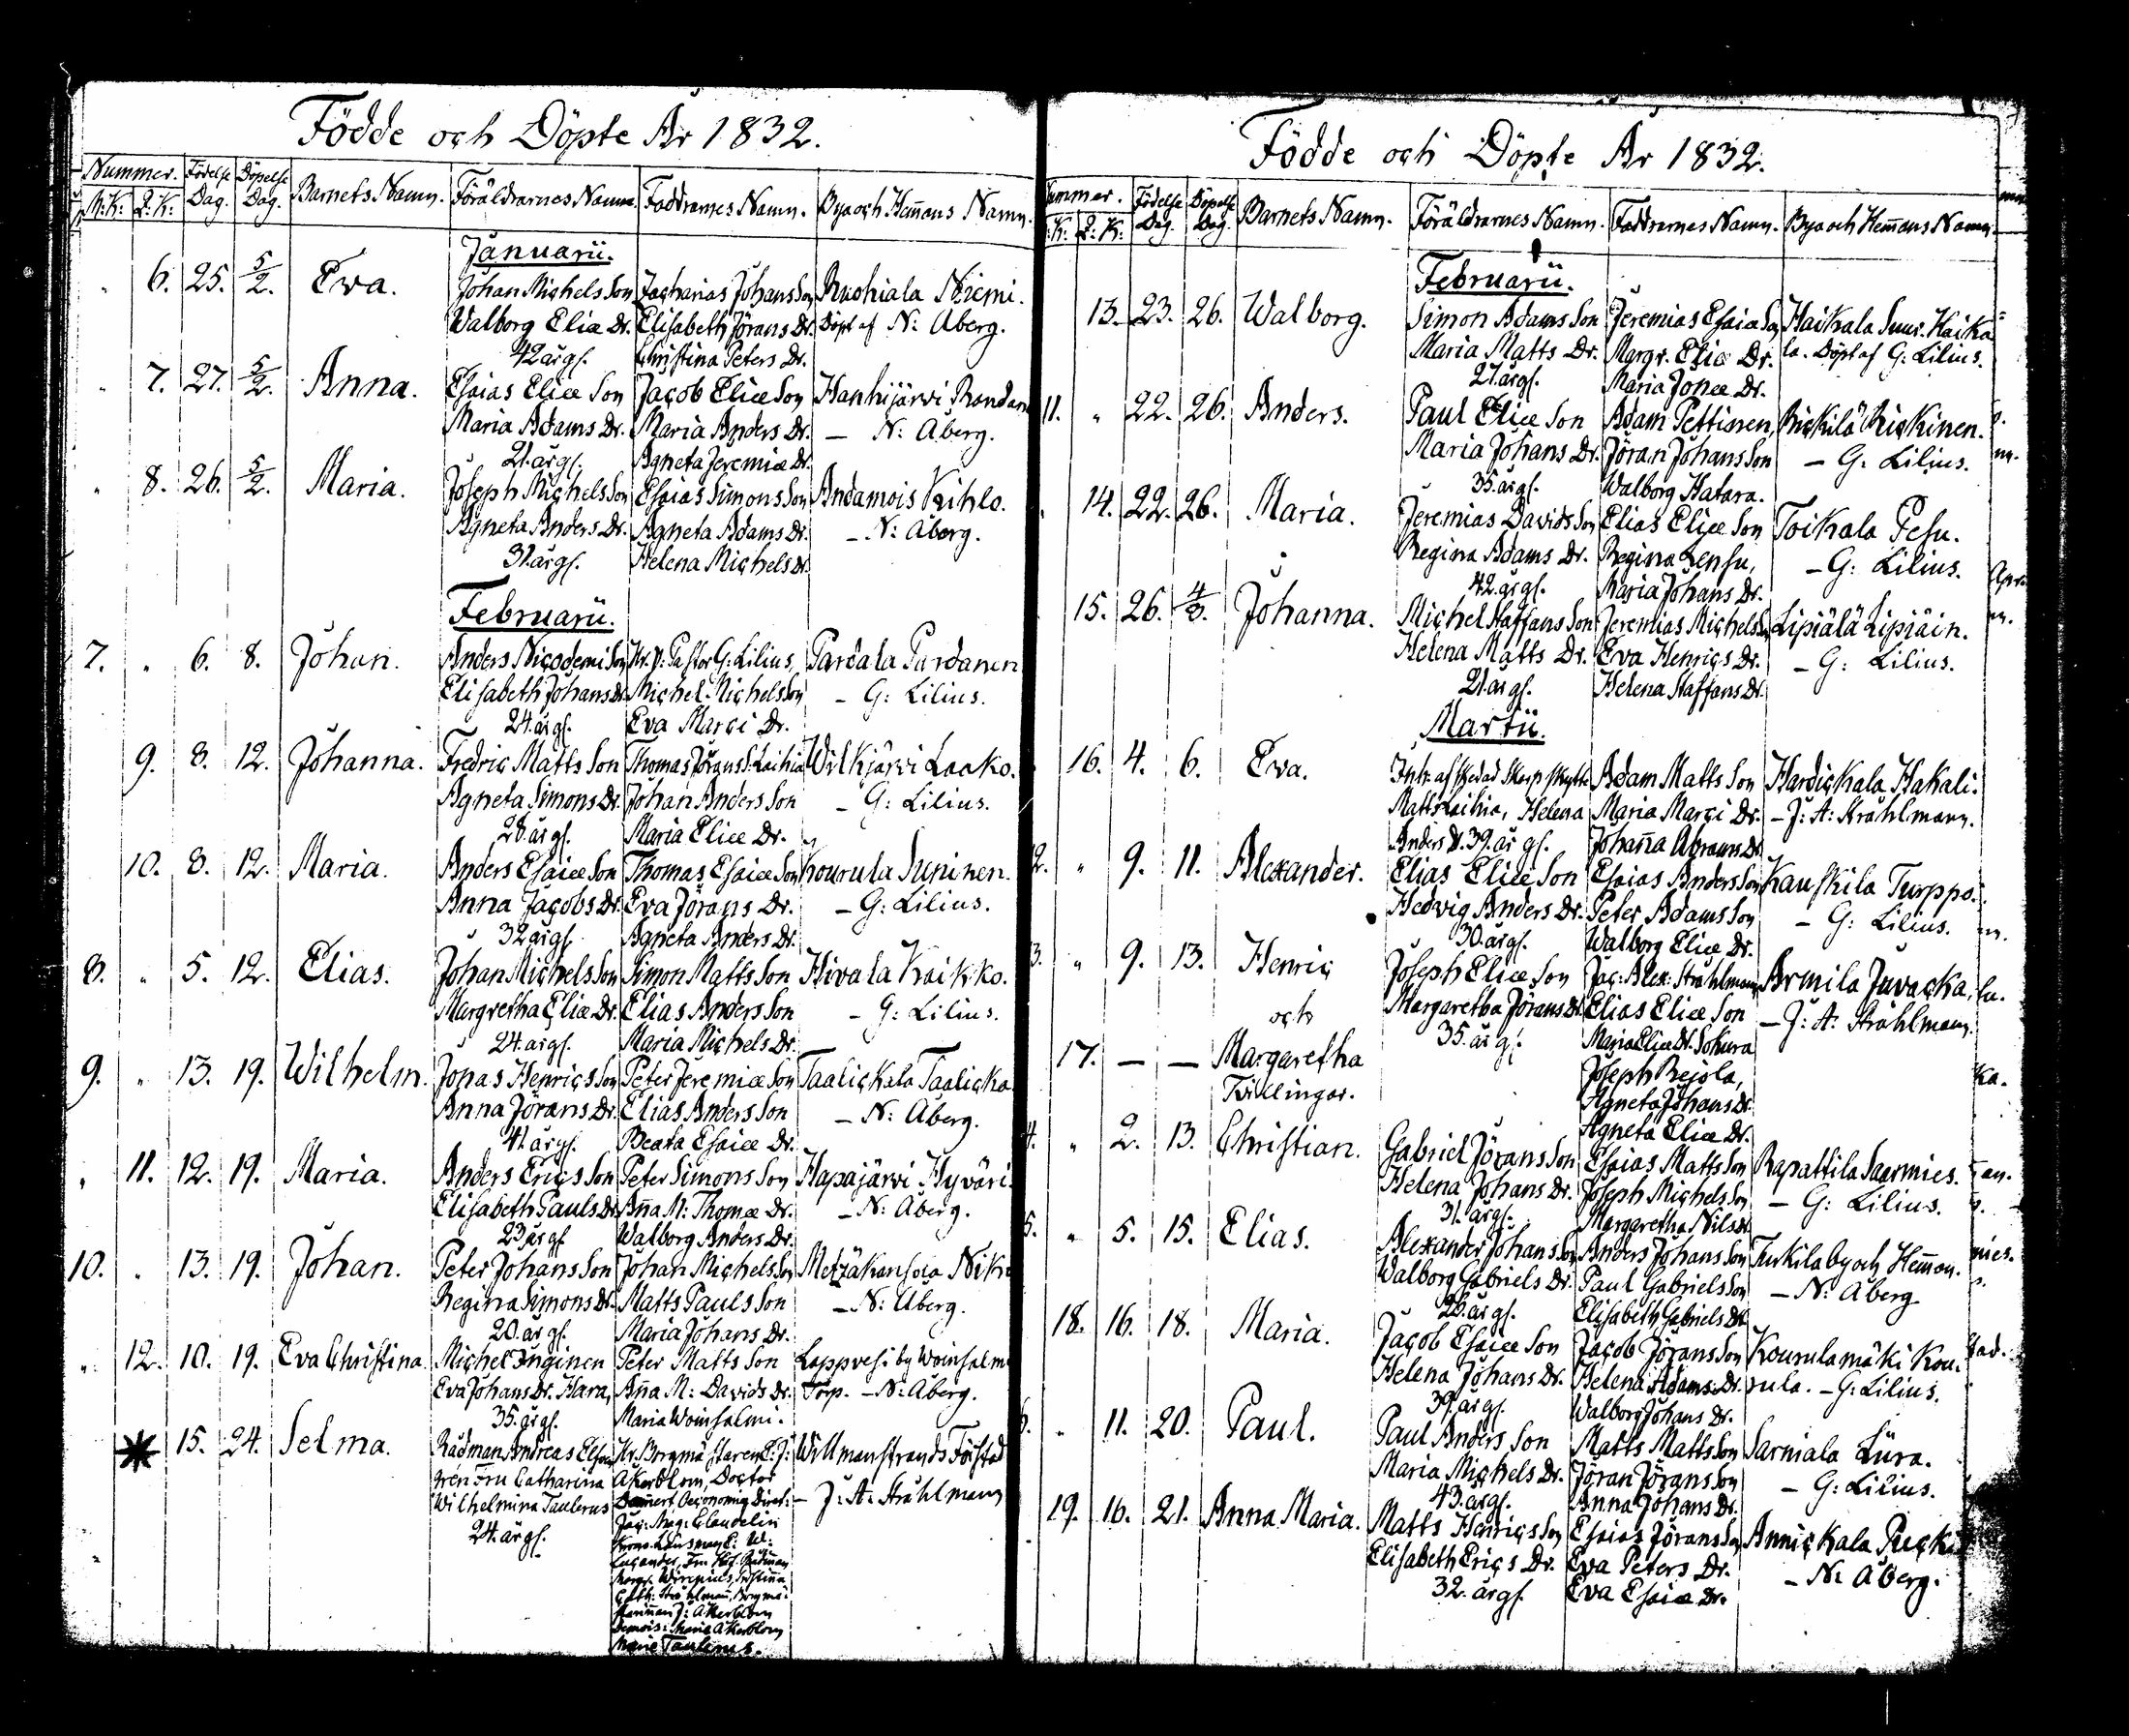 Födde och Döpte År 1832.
Nummer. Födelse Dag. Döpelse Dag. Barnets Namn. Föräldrarnes Namn. Faddrarnes Namn. Bya och Hem̄ans Namn.
M:K: Q:K:
Januarii.
" 6. 25. 5/2. Eva. Johan Michels Son Zacharias Johans Son Ruohiala Niemi.
Walborg Eliæ Dr. Elisabeth Jörans Dr. Döpt af N: Åberg.
42 årgl. Christina Peters Dr.
" 7. 27. 5/2. Anna. Esaias Eliæ Son Jacob Eliæ Son Hanhijärvi Rondan
Maria Adams Dr. Maria Anders Dr. — N: Åberg.
21. årgl. Agneta Jeremiæ Dr.
" 8. 26. 5/2. Maria. Joseph Michels Son Esaias Simons Son Andamois Kihlo.
Agneta Anders Dr. Agneta Adams Dr. — N: Åberg.
31. årgl. Helena Michels Dr.
Februarii.
7. " 6. 8. Johan. Anders Nicodemi Son Hr. V: Pastor G: Lilius, Pardala Pardanen
Elisabeth Johans Dr. Michel Michels Son — G: Lilius.
24. årgl. Eva Marci Dr.
9. 8. 12. Johanna. Fredric Matts Son Thomas Jörans S. Laihia Wilkjärvi Laako.
Agneta Simons Dr. Johan Anders Son — G: Lilius.
28. årgl. Maria Eliæ Dr.
10. 8. 12. Maria. Anders Esaiæ Son Thomas Esaiæ Son Kourula Suninen.
Anna Jacobs Dr. Eva Jörans Dr. — G: Lilius.
32 årgl. Agneta Anders Dr.
8. " 5. 12. Elias. Johan Michels Son Simon Matts Son Hivala Kaikko.
Margretha Eliæ Dr. Elias Anders Son — G: Lilius.
24. årgl. Maria Michels Dr.
9. " 13. 19. Wilhelm. Jonas Henrics Son Peter Jeremiæ Son Taalickala Taalicka
Anna Jörans Dr. Elias Anders Son — N: Åberg.
41. årgl. Beata Esaiæ Dr.
" 11. 12. 19. Maria. Anders Erics Son Peter Simons Son Hapajärvi Hyväri.
Elisabeth Pauls Dr. Ana M: Thomæ Dr. — N: Åberg.
23 årgl. Walborg Anders Dr.
10. " 13. 19. Johan. Peter Johans Son Johan Michels Son Metzäkansola Nik
Regina Simons Dr. Matts Pauls Son — N: Åberg.
20. årgl. Maria Johans Dr.
" 12. 10. 19. Eva Christina. Michel Inginen Peter Matts Son Lappvesi by Woinsalmi
Eva Johans Dr. Hara, Ana M: Davids Dr. Torp. — N: Åberg.
35. årgl. Maria Woinsalmi.
* 15. 24. Selma. Rådman Andreas Elf Hr. Borgmästaren E: J: Willmanstrands Förstad
gren Fru Catharina Åkerblom, Doctor
Wilhelmina Taulerus — J: A: Stråhlmann
24. årgl. Jac: Mag: Elandelin
Åkerblom
Demois: Marie Åkerblom
Marie Taulerus.
Födde och Döpte År 1832.
Nummer. Födelse Dag. Döpelse Dag. Barnets Namn. Föräldrarnes Namn. Faddrarnes Namn. Bya och Hem̄ans Namn.
:K: Q:K:
Februarii.
13. 23. 26. Walborg. Simon Adams Son Jeremias Esaiæ Son Haikala Suur-Haika
Maria Matts Dr. Margr. Eliæ Dr. la. Döpt af G: Lilius.
27. årgl. Maria Jonæ Dr.
11. " 22. 26. Anders. Paul Eliæ Son Adam Pettinen, Rickilä Rickinen.
Maria Johans Dr. Jöran Johans Son — G: Lilius.
35. årgl. Walborg Hatara.
14. 22. 26. Maria. Jeremias Davids Son Elias Eliæ Son Toikala Pesu.
Regina Adams Dr. Regina Lensu, — G: Lilius.
42. årgl. Maria Johans Dr.
15. 26. 4/3. Johanna. Michel Staffans Son Jeremias Michels Son Lipiälä Lipiäin.
Helena Matts Dr. Eva Henrics Dr. — G: Lilius.
21. årgl. Helena Staffans Dr.
Martii.
16. 4. 6. Eva. Inh: afskedad Skarpskytte Adam Matts Son Hardickala Hakali.
Matts Laihia, Helena Maria Marci Dr. — J: A: Stråhlmann.
Anders D. 39. år gl. Johana Abrams Dr.
12. " 9. 11. Alexander. Elias Eliæ Son Esaias Anders Son Kauskila Turppo.
Hedvig Anders Dr. Peter Adams Son — G: Lilius.
30. årgl. Walborg Eliæ Dr.
3. " 9. 13. Henric Joseph Eliæ Son Jac: Alex: Stråhlmann Armila Juvacka.
och Margaretha Jörans Dr. Elias Eliæ Son — J: A: Stråhlmann.
35. år gl. Maria Eliæ Dr. Sokura
17. — — Margaretha Joseph Reijola,
Tvillingar. Agneta Johans Dr.
Agneta Eliæ Dr.
4. " 2. 13. Christian. Gabriel Jörans Son Esaias Matts Son Rapattila Saarmies.
Helena Johans Dr. Joseph Michels Son — G: Lilius.
31. årgl. Margaretha Nils Dr.
5. " 5. 15. Elias. Alexander Johans Son Anders Johans Son Turkila by och Hem̄an.
Walborg Gabriels Dr. Paul Gabriels Son — N: Åberg
26. årgl. Elisabeth Gabriels Dr.
18. 16. 18. Maria. Jacob Esaiæ Son Jacob Jörans Son Kourulamäki Kou-
Helena Johans Dr. Helena Adams Dr. rula. — G: Lilius.
39. årgl. Walborg Johans Dr.
6. " 11. 20. Paul. Paul Anders Son Matts Matts Son Sarniala Lüra.
Maria Michels Dr. Jöran Jörans Son — G: Lilius.
43. årgl. Anna Johans Dr.
19. 16. 21. Anna Maria. Matts Henrics Son Esaias Jörans Son Annickala Puck
Elisabeth Erics Dr. Eva Peters Dr. — N: Åberg.
32. årgl. Eva Esaiæ Dr.